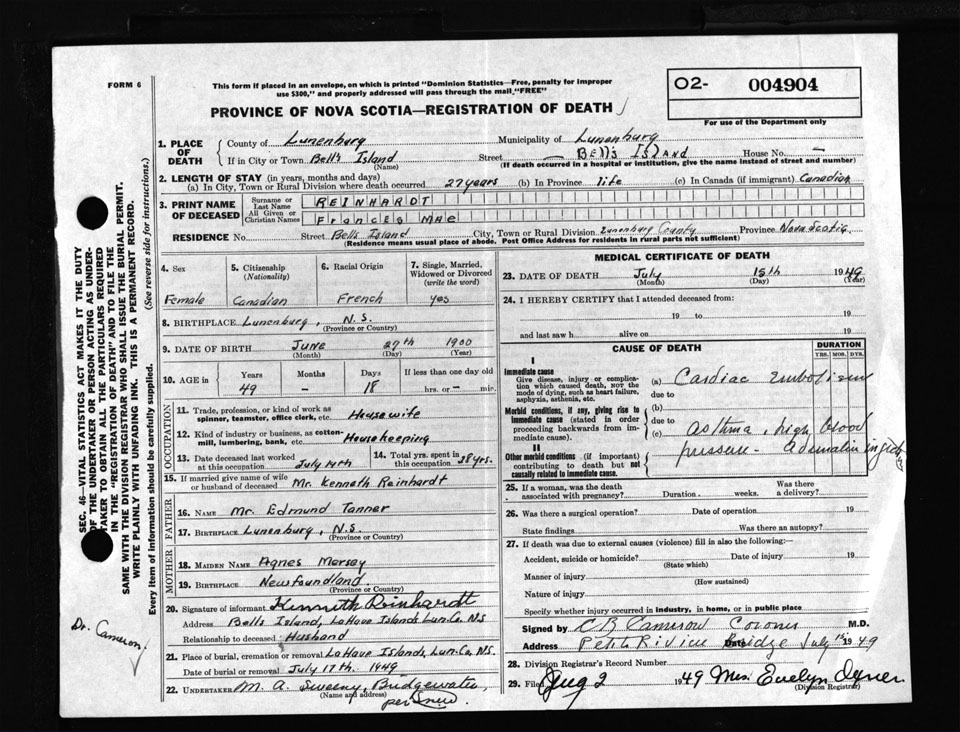 FORM 6
This form if placed in an envelope, on which is printed "Dominion Statistics—Free, penalty for improper
use $300," and properly addressed will pass through the mail "FREE"
02- 004904
For use of the Department only
PROVINCE OF NOVA SCOTIA—REGISTRATION OF DEATH
1. PLACE OF DEATH
County of Lunenburg Municipality of Lunenburg
If in City or Town Bell's Island (Name) Street — Bell's Island House No. —
(If death occurred in a hospital or institution, give the name instead of street and number)
2. LENGTH OF STAY (in years, months and days)
(a) In City, Town or Rural Division where death occurred 27 years (b) In Province life (c) In Canada (if immigrant) Canadian
3. PRINT NAME OF DECEASED
Surname or Last Name REINHARDT
All Given or Christian Names Frances Mae
RESIDENCE No. Street Bells Island City, Town or Rural Division Lunenburg County Province Nova Scotia
(Residence means usual place of abode. Post Office Address for residents in rural parts not sufficient)
4. Sex Female
5. Citizenship (Nationality) Canadian
6. Racial Origin French
7. Single, Married, Widowed or Divorced (write the word) yes
8. BIRTHPLACE Lunenburg, N.S.
(Province or Country)
9. DATE OF BIRTH June 27th 1900
(Month) (Day) (Year)
10. AGE in Years 49 Months — Days 18 If less than one day old hrs. or — min.
OCCUPATION
11. Trade, profession, or kind of work as spinner, teamster, office clerk, etc. Housewife
12. Kind of industry or business, as cotton-mill, lumbering, bank, etc. Housekeeping
13. Date deceased last worked at this occupation July 14th
14. Total yrs. spent in this occupation 28 yrs.
15. If married give name of wife or husband of deceased Mr. Kenneth Reinhardt
FATHER
16. NAME Mr. Edmund Tanner
17. BIRTHPLACE Lunenburg, N.S.
(Province or Country)
MOTHER
18. MAIDEN NAME Agnes
19. BIRTHPLACE Newfoundland
(Province or Country)
20. Signature of informant Kenneth Reinhardt
Address Bells Island, LaHave Islands Lun. Co. N.S
Relationship to deceased Husband
21. Place of burial, cremation or removal LaHave Islands, Lun. Co. N.S.
Date of burial or removal July 17th 1949
22. UNDERTAKER M. A. Sweeny, Bridgewater,
(Name and address)
per
MEDICAL CERTIFICATE OF DEATH
23. DATE OF DEATH July 15th 1949
(Month) (Day) (Year)
24. I HEREBY CERTIFY that I attended deceased from:
19 to 19
and last saw h alive on 19
CAUSE OF DEATH
DURATION
YRS. MOS. DYS.
I
Immediate cause
Give disease, injury or complication which caused death, NOT the mode of dying, such as heart failure, asphyxia, asthenia, etc.
(a) Cardiac Embolism
due to
Morbid conditions, if any, giving rise to immediate cause (stated in order proceeding backwards from immediate cause).
(b)
due to
(c) asthma, high blood
II
Other morbid conditions (if important) contributing to death but not causally related to immediate cause.
pressure -
25. If a woman, was the death associated with pregnancy? Duration weeks. Was there a delivery?
26. Was there a surgical operation? Date of operation 19
State findings Was there an autopsy?
27. If death was due to external causes (violence) fill in also the following:—
Accident, suicide or homicide? Date of injury 19
(State which)
Manner of injury
(How sustained)
Nature of injury
Specify whether injury occurred in industry, in home, or in public place
Signed by C B Cameron Coroner M.D.
Address Petite Riviere Bridge July 15 1949
28. Division Registrar's Record Number
29. Filed Aug 2 1949 Mrs. Evelyn
(Division Registrar)
SEC. 46—VITAL STATISTICS ACT MAKES IT THE DUTY
OF THE UNDERTAKER OR PERSON ACTING AS UNDER-
TAKER TO OBTAIN ALL THE PARTICULARS REQUIRED
IN THE "REGISTRATION OF DEATH" AND TO FILE THE
SAME WITH THE DIVISION REGISTRAR WHO SHALL ISSUE THE BURIAL PERMIT.
WRITE PLAINLY WITH UNFADING INK. THIS IS A PERMANENT RECORD.
Every item of information should be carefully supplied. (See reverse side for instructions.)
Dr. Cameron